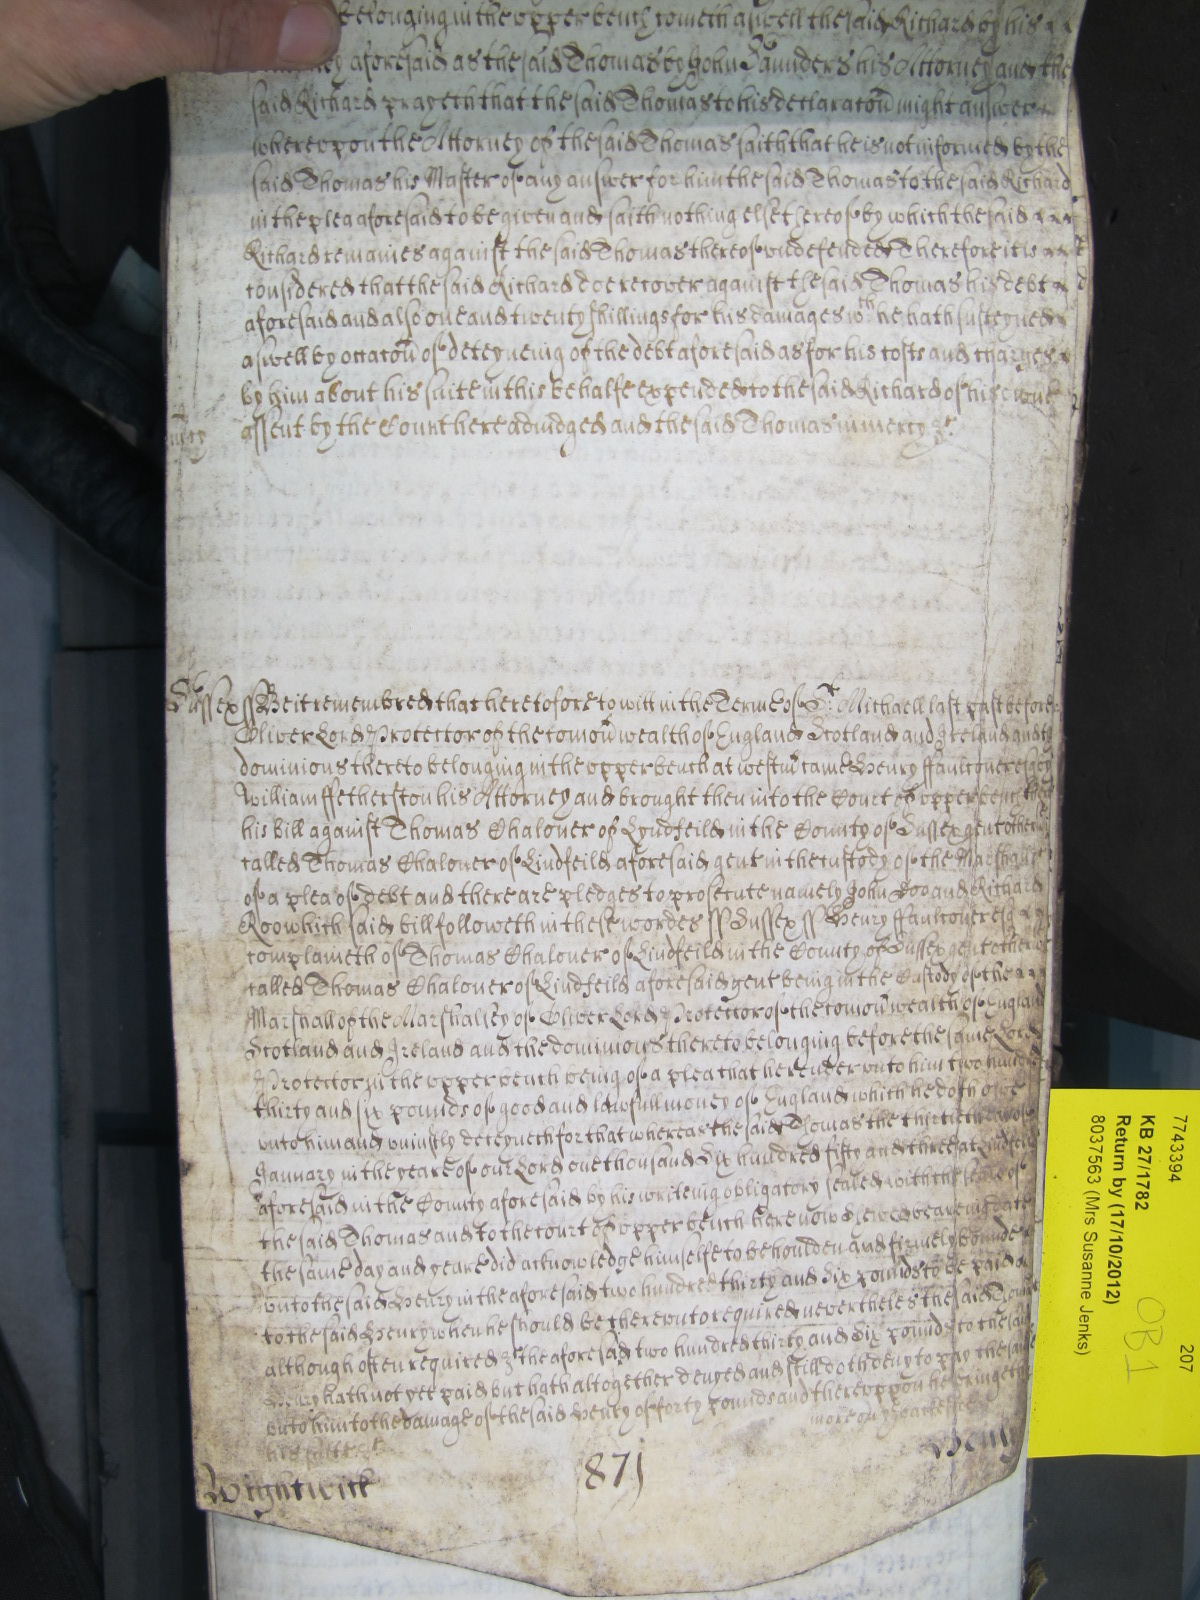 belonging in the upper bench cometh aswell the said Richard by his
aforesaid as the said Thomas by John Saunders his Attorney and the
said Richard prayeth that the said Thomas to his declaracon might answer
whereupon the Attorney of the said Thomas saith that he is not informed by the
said Thomas his Master of any answer for him the said Thomas to the said Richard
in the plea aforesaid to be given and saith nothing else thereof by which the said
Richard remaines against the said Thomas thereof undefended Therefore it is
considered that the said Richard doe recover against the said Thomas his debt
aforesaid and also one and twenty shillings for his damages wch he hath susteyned
aswell by occacon of deteyneing of the debt aforesaid as for his costs and charges
by him about his suite in this behalfe expended to the said Richard of his owne
assent by the Court here adiudged and the said Thomas in mercy &c
Sussex ss Be it remembred that heretofore to witt in the Terme of St. Michaell last past before
Oliver Lord Protector of the comonwealth of England Scotland and Ireland and the
dominions thereto belonging in the upper bench at westmr came Henry ffaulconer esq by
William ffetherston his Attorney and brought then into the Court of upper bench then
his bill against Thomas Chaloner of Lyndfeild in the County of Sussex gent otherwise
called Thomas Chaloner of Lindfeild aforesaid gent in the custody of the Marshall
of a plea of debt and there are pledges to prosecute namely John Doo and Richard
Roo which said bill followeth in these wordes ss Sussex ss Henry ffaulconer esq
complaineth of Thomas Chaloner of Lindfeild in the County of Sussex gent otherwise
called Thomas Chaloner of Lindfeild aforesaid gent being in the Custody of the
Marshall of the Marshalsey of Oliver Lord Protector of the comonwealth of England
Scotland and Ireland and the dominions thereto belonging before the same Lord
Protector in the upper bench being of a plea that he render unto him two hundred
thirty and six pounds of good and lawfull money of England which he doth owe
unto him and uniustly deteyneth for that whereas the said Thomas the thirtieth day of
January in the yeare of our Lord one thousand Six hundred fifty and three at Lindfeild
aforesaid in the County aforesaid by his writeing obligatory sealed with the seale of
the said Thomas and to the court of upper bench here now shewed beareing date
the same day and yeare did acknowledge himselfe to be houlden and firmely bounde
unto the said Henry in the aforesaid two hundred thirty and Six pounds to be paid
to the said Henry when he should be thereunto required nevertheles the said Thomas
although often required &c the aforesaid two hundred thirty and Six pounds to the said
Henry hath not yet paid but hath altogether denyed and still doth deny to pay the same
unto him to the damage of the said Henry of forty pounds and thereuppon he bringeth
his suite &c
Wightwick
871
Henry
7743394
207
KB 27/1782
Return by (17/10/2012)
8037563 (Mrs Susanne Jenks)
OB1